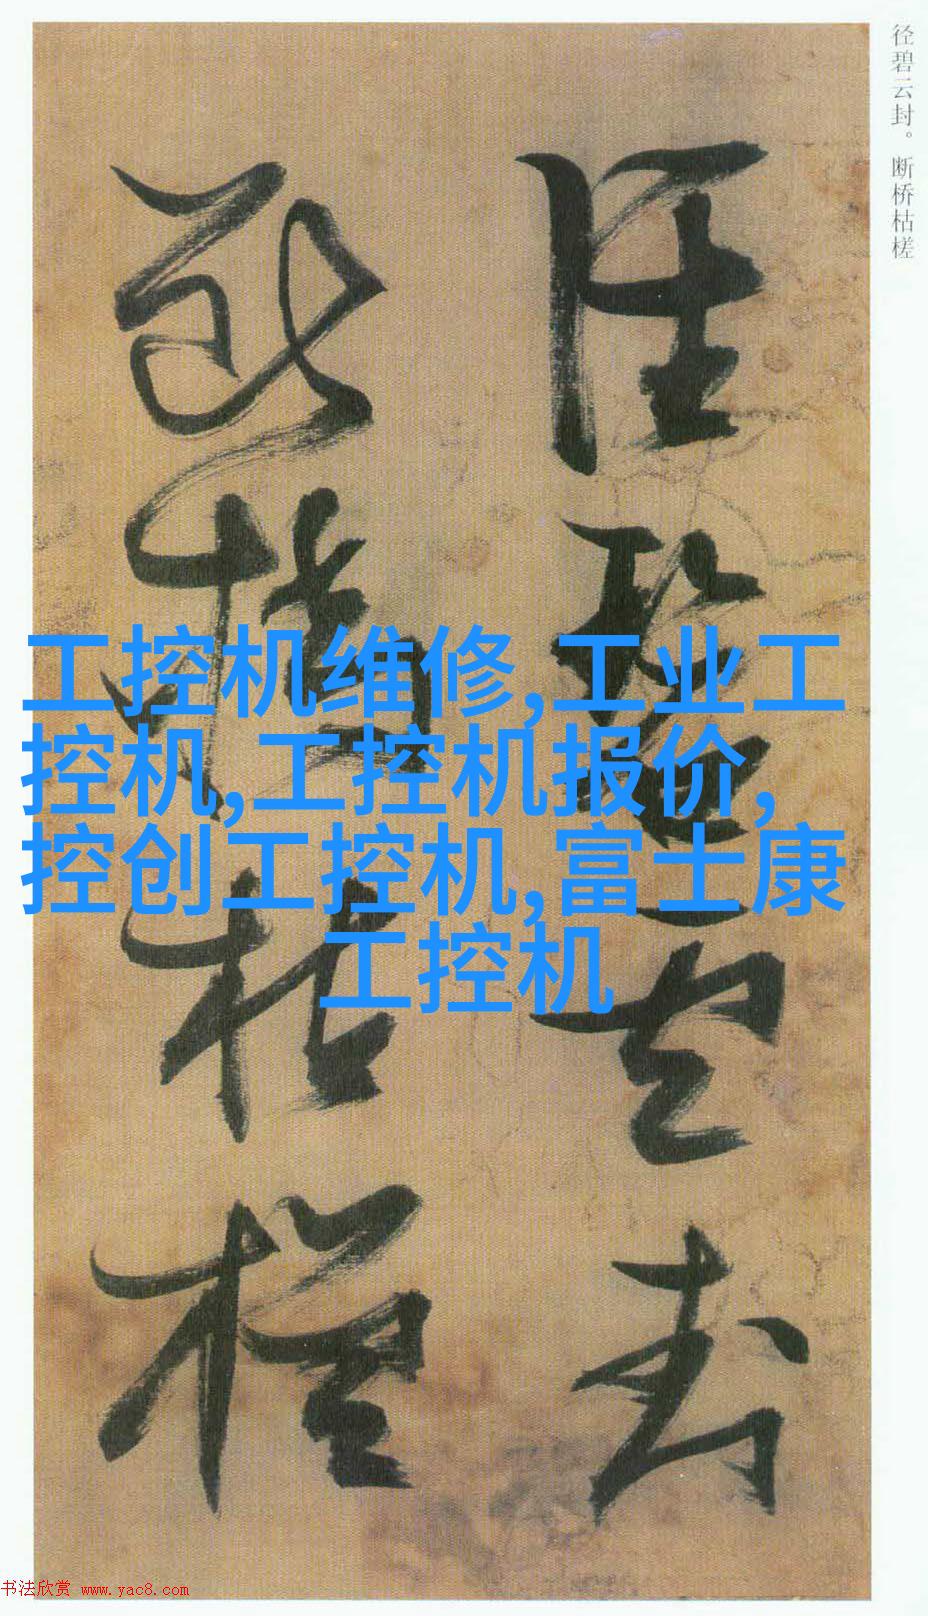 径碧云封。断桥枯槎
径碧云封
断桥枯槎
工控机维修,工业工
控机,工控机报价,
控创工控机,富士康
工控机
书法欣赏 www.yac8.com